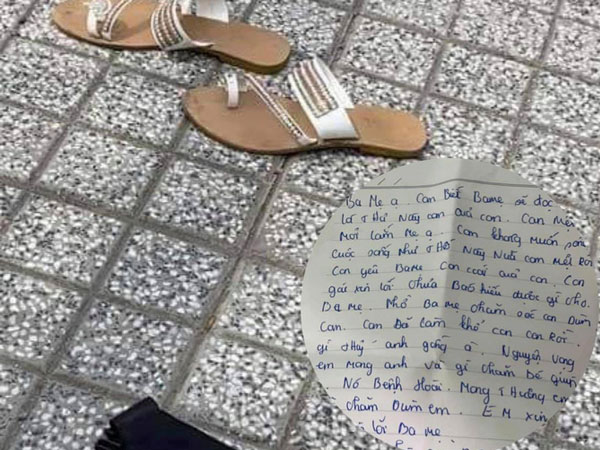 Ba Mẹ ạ. Con Biết Ba Mẹ sẽ đọc
lá thư Này của con. Con Mệt
Mỏi lắm Mẹ ạ. Con không muốn
cuộc sống Như thế Này Nữa con Mệt Rồi
Con yêu Ba Mẹ con của con. Con
gái xin lỗi chưa Báo hiếu được gì cho
Ba Mẹ. Nhờ Ba mẹ chăm con dùm
Con. Con Đã làm khổ con con Rồi.
gì anh ạ. Nguyện Vọng
em Mong anh Và gì chăm Bé
Nó Bệnh Hoài. Mong Thương em
chăm Dùm em. EM xin
lỗi Ba Mẹ